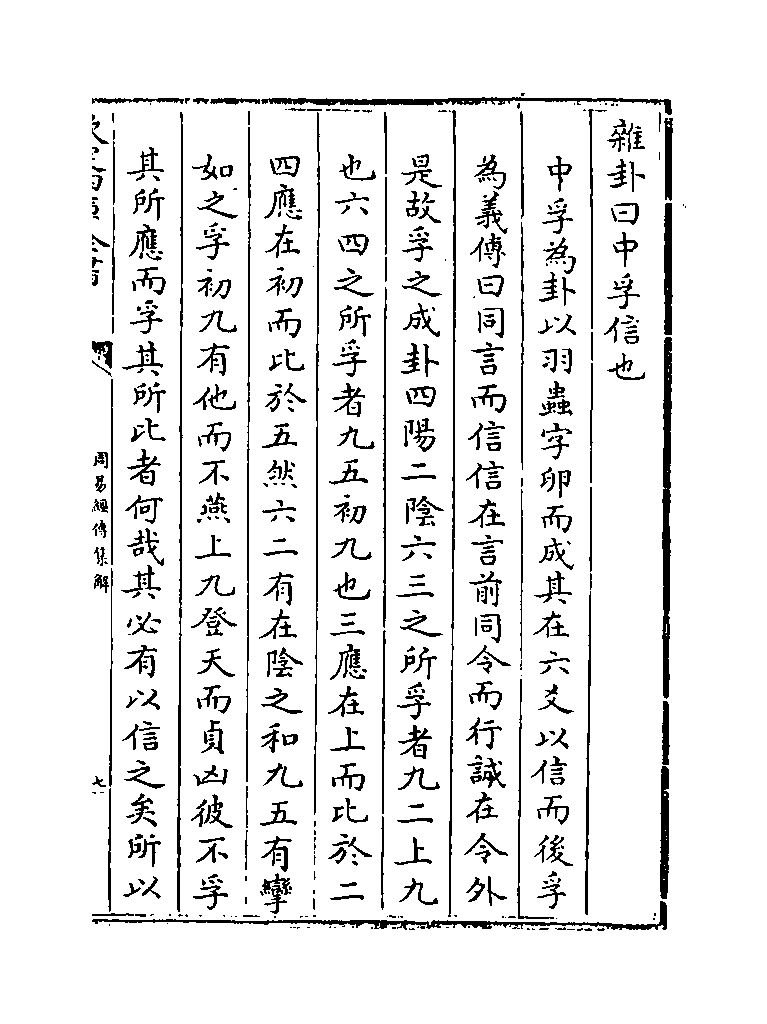 雜卦曰中孚信也
中孚為卦以羽蟲字卵而成其在六爻以信而後孚
為義傳曰同言而信信在言前同令而行誠在令外
是故孚之成卦四陽二陰六三之所孚者九二上九
也六四之所孚者九五初九也三應在上而比於二
四應在初而比於五然六二有在陰之和九五有攣
如之孚初九有他而不燕上九登天而貞凶彼不孚
其所應而孚其所比者何哉其必有以信之矣所以
周易經傳集解